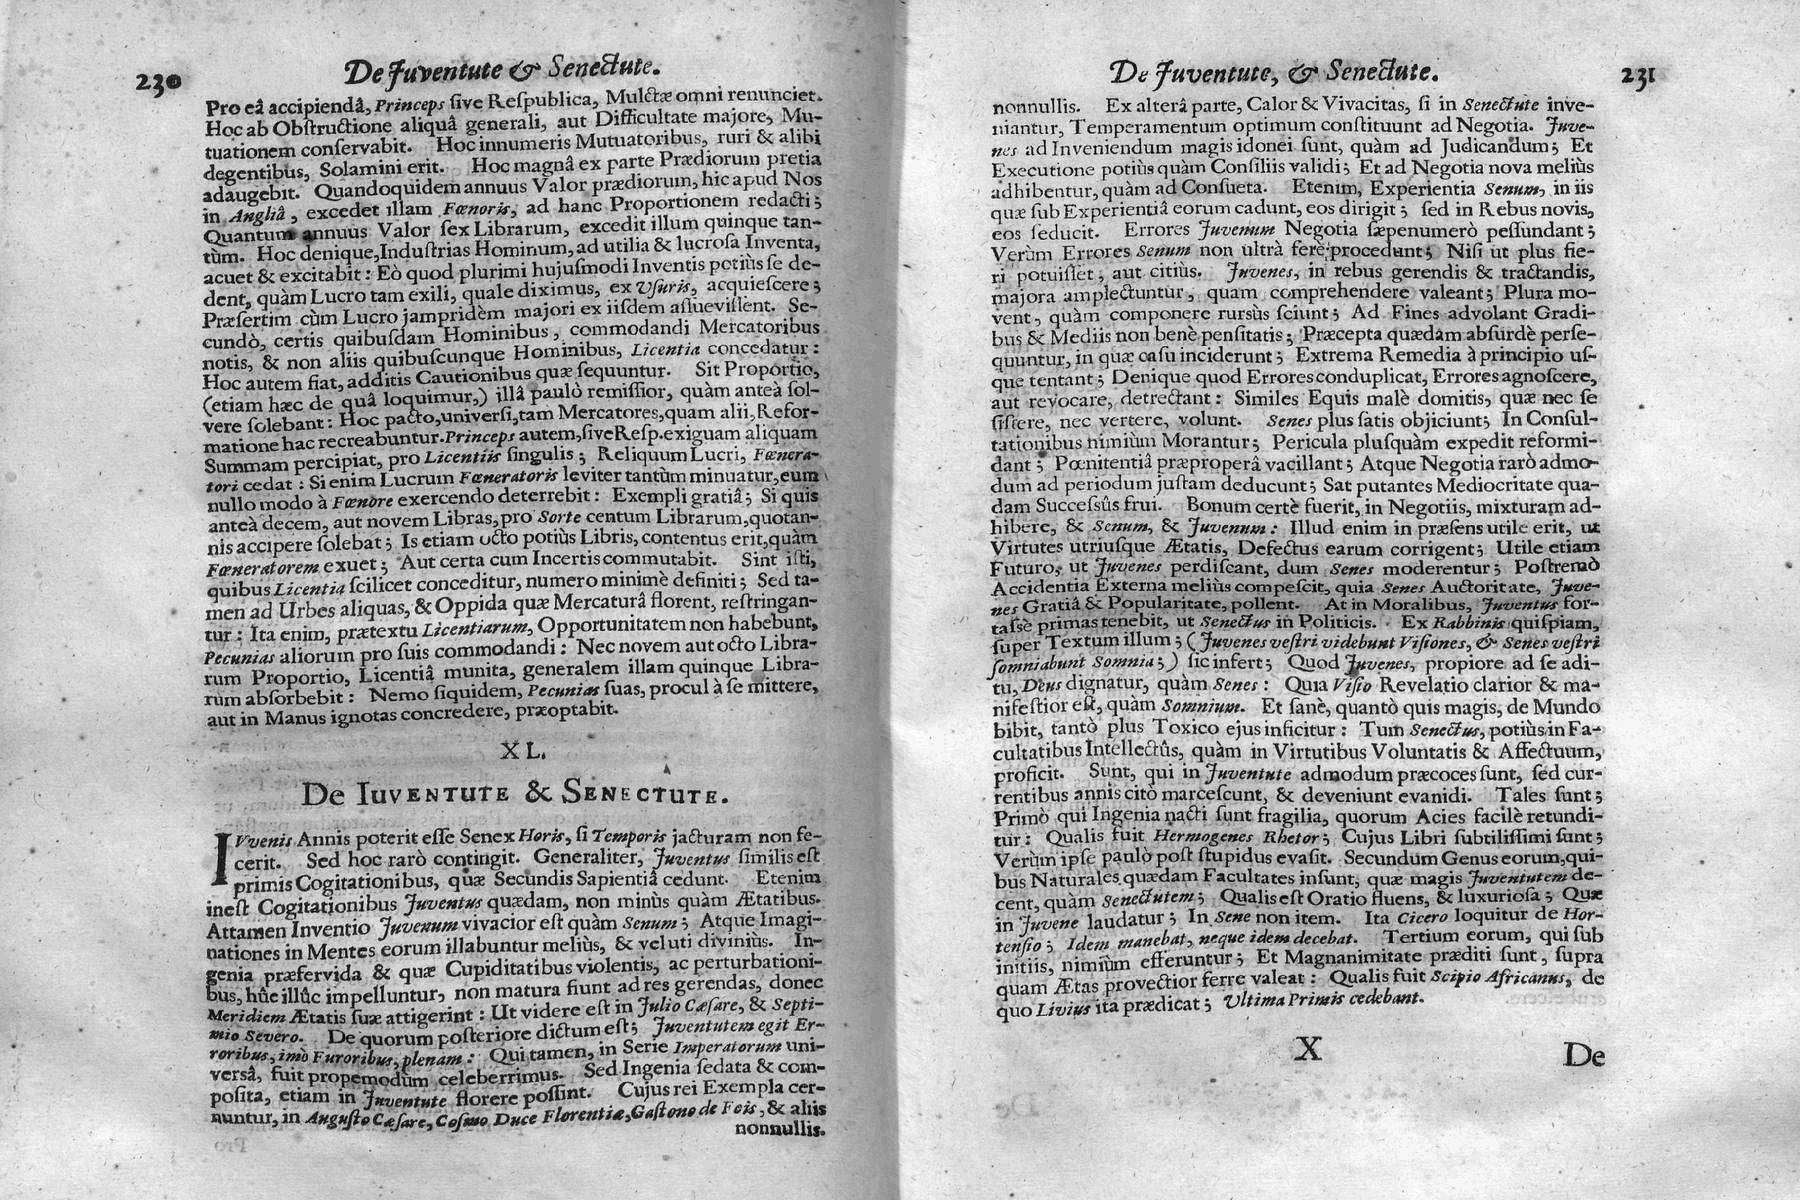 230
De Juventute & Senectute.
Pro eâ accipiendâ, Princeps sive Respublica, Mulctæ omni renunciet.
Hoc ab Obstructione aliquâ generali, aut Difficultate majore, Mu-
tuationem conservabit. Hoc innumeris Mutuatoribus, ruri & alibi
degentibus, Solamini erit. Hoc magnâ ex parte Prædiorum pretia
adaugebit. Quandoquidem annuus Valor prædiorum, hic apud Nos
in Angliâ, excedet illam Fœnoris, ad hanc Proportionem redacti;
Quantum annuus Valor sex Librarum, excedit illum quinque tan-
tùm. Hoc denique, Industrias Hominum, ad utilia & lucrosa Inventa,
acuet & excitabit: Eò quod plurimi hujusmodi Inventis potiùs se de-
dent, quàm Lucro tam exili, quale diximus, ex Vsuris, acquiescere;
Præsertim cùm Lucro jampridèm majori ex iisdem assuevissent. Se-
cundò, certis quibusdam Hominibus, commodandi Mercatoribus
notis, & non aliis quibuscunque Hominibus, Licentia concedatur:
Hoc autem fiat, additis Cautionibus quæ sequuntur. Sit Proportio,
(etiam hæc de quâ loquimur,) illâ paulò remissior, quàm anteà sol-
vere solebant: Hoc pacto, universi, tam Mercatores, quam alii, Refor-
matione hac recreabuntur. Princeps autem, sive Resp. exiguam aliquam
Summam percipiat, pro Licentiis singulis; Reliquum Lucri, Fœnera-
tori cedat: Si enim Lucrum Fœneratoris leviter tantùm minuatur, eum
nullo modo à Fœnore exercendo deterrebit: Exempli gratiâ; Si quis
anteà decem, aut novem Libras, pro Sorte centum Librarum, quotan-
nis accipere solebat; Is etiam octo potiùs Libris, contentus erit, quàm
Fœneratorem exuet; Aut certa cum Incertis commutabit. Sint isti,
quibus Licentia scilicet conceditur, numero minimè definiti; Sed ta-
men ad Urbes aliquas, & Oppida quæ Mercaturâ florent, restringan-
tur: Ita enim, prætextu Licentiarum, Opportunitatem non habebunt,
Pecunias aliorum pro suis commodandi: Nec novem aut octo Libra-
rum Proportio, Licentiâ munita, generalem illam quinque Libra-
rum absorbebit: Nemo siquidem, Pecunias suas, procul à se mittere,
aut in Manus ignotas concredere, præoptabit.
XL.
De IUVENTUTE & SENECTUTE.
IVvenis Annis poterit esse Senex Horis, si Temporis jacturam non fe-
cerit. Sed hoc rarò contingit. Generaliter, Juventus similis est
primis Cogitationibus, quæ Secundis Sapientiâ cedunt. Etenim
inest Cogitationibus Juventus quædam, non minùs quàm Ætatibus.
Attamen Inventio Juvenum vivacior est quàm Senum; Atque Imagi-
nationes in Mentes eorum illabuntur meliùs, & veluti diviniùs. In-
genia præfervida & quæ Cupiditatibus violentis, ac perturbationi-
bus, hûc illûc impelluntur, non matura fiunt ad res gerendas, donec
Meridiem Ætatis suæ attigerint: Ut videre est in Julio Cæsare, & Septi-
mio Severo. De quorum posteriore dictum est; Juventutem egit Er-
roribus, imò Furoribus, plenam: Qui tamen, in Serie Imperatorum uni-
versâ, fuit propemodùm celeberrimus. Sed Ingenia sedata & com-
posita, etiam in Juventute florere possint. Cujus rei Exempla cer-
nuntur, in Augusto Cæsare, Cosmo Duce Florentiæ, Gastono de Fois, & aliis
nonnullis.
De Juventute, & Senectute.
231
nonnullis. Ex alterâ parte, Calor & Vivacitas, si in Senectute inve-
niantur, Temperamentum optimum constituunt ad Negotia. Juve-
nes ad Inveniendum magis idonei sunt, quàm ad Judicandum; Et
Executione potiùs quàm Consiliis validi; Et ad Negotia nova meliùs
adhibentur, quàm ad Consueta. Etenim, Experientia Senum, in iis
quæ sub Experientiâ eorum cadunt, eos dirigit; sed in Rebus novis,
eos seducit. Errores Juvenum Negotia sæpenumerò pessundant;
Verùm Errores Senum non ultrà ferè procedunt; Nisi ut plus fie-
ri potuisset, aut citiùs. Juvenes, in rebus gerendis & tractandis,
majora amplectuntur, quam comprehendere valeant; Plura mo-
vent, quàm componere rursùs sciunt; Ad Fines advolant Gradi-
bus & Mediis non benè pensitatis; Præcepta quædam absurdè perse-
quuntur, in quæ casu inciderunt; Extrema Remedia à principio us-
que tentant; Denique quod Errores conduplicat, Errores agnoscere,
aut revocare, detrectant: Similes Equis malè domitis, quæ nec se
sistere, nec vertere, volunt. Senes plus satis objiciunt; In Consul-
tationibus nimiùm Morantur; Pericula plusquàm expedit reformi-
dant; Pœnitentiâ præproperâ vacillant; Atque Negotia rarò admo-
dum ad periodum justam deducunt; Sat putantes Mediocritate qua-
dam Successûs frui. Bonum certè fuerit, in Negotiis, mixturam ad-
hibere, & Senum, & Juvenum: Illud enim in præsens utile erit, ut
Virtutes utriusque Ætatis, Defectus earum corrigent; Utile etiam
Futuro, ut Juvenes perdiscant, dum Senes moderentur; Postremò
Accidentia Externa meliùs compescit, quia Senes Auctoritate, Juve-
nes Gratiâ & Popularitate, pollent. At in Moralibus, Juventus for-
tasse primas tenebit, ut Senectus in Politicis. Ex Rabbinis quispiam,
super Textum illum; (Juvenes vestri videbunt Visiones, & Senes vestri
somniabunt Somnia;) sic infert; Quod Juvenes, propiore ad se adi-
tu, Deus dignatur, quàm Senes: Quia Visio Revelatio clarior & ma-
nifestior est, quàm Somnium. Et sanè, quantò quis magis, de Mundo
bibit, tantò plus Toxico ejus inficitur: Tum Senectus, potiùs in Fa-
cultatibus Intellectûs, quàm in Virtutibus Voluntatis & Affectuum,
proficit. Sunt, qui in Juventute admodum præcoces sunt, sed cur-
rentibus annis citò marcescunt, & deveniunt evanidi. Tales sunt;
Primò qui Ingenia nacti sunt fragilia, quorum Acies facilè retundi-
tur: Qualis fuit Hermogenes Rhetor; Cujus Libri subtilissimi sunt;
Verùm ipse paulò post stupidus evasit. Secundum Genus eorum, qui-
bus Naturales quædam Facultates insunt, quæ magis Juventutem de-
cent, quàm Senectutem; Qualis est Oratio fluens, & luxuriosa; Quæ
in Juvene laudatur; In Sene non item. Ita Cicero loquitur de Hor-
tensio; Idem manebat, neque idem decebat. Tertium eorum, qui sub
initiis, nimiùm efferuntur; Et Magnanimitate præditi sunt, supra
quam Ætas provectior ferre valeat: Qualis fuit Scipio Africanus, de
quo Livius ita prædicat; Ultima Primis cedebant.
X
De